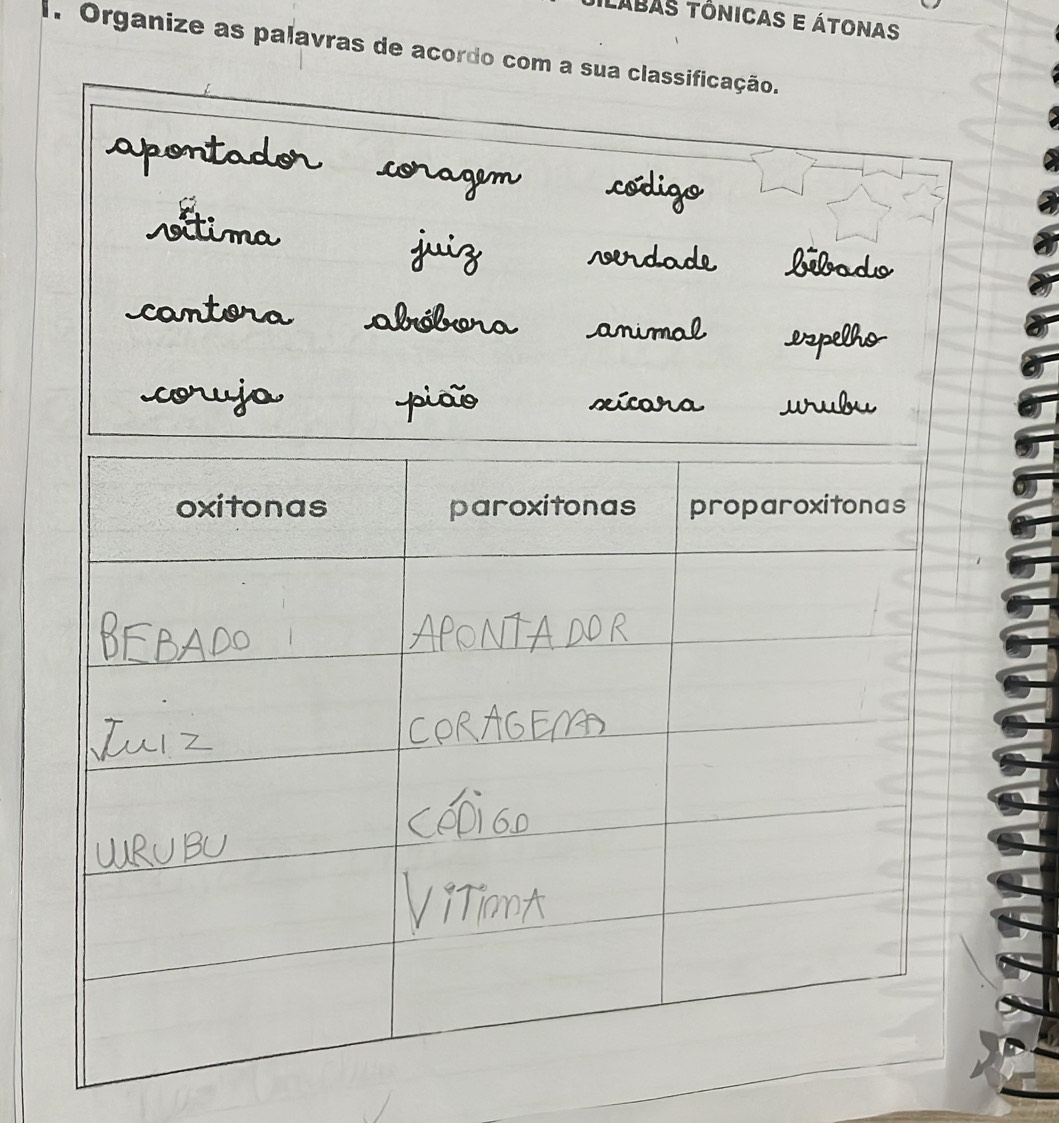 SÍLABAS TÔNICAS E ÁTONAS
1. Organize as palavras de acordo com a sua classificação.
apontador coragem código
vítima juiz verdade bêbado
cantora abóbora animal espelho
coruja pião xícara urubu
oxítonas paroxítonas proparoxítonas
BEBADO APONTADOR
JUIZ CORAGEM
URUBU CÓDIGO
VITIMA